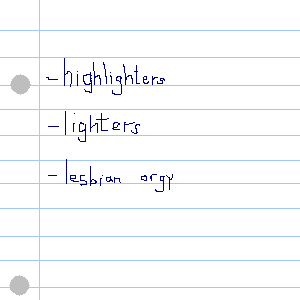 -highlighters
-lighters
-lesbian orgy